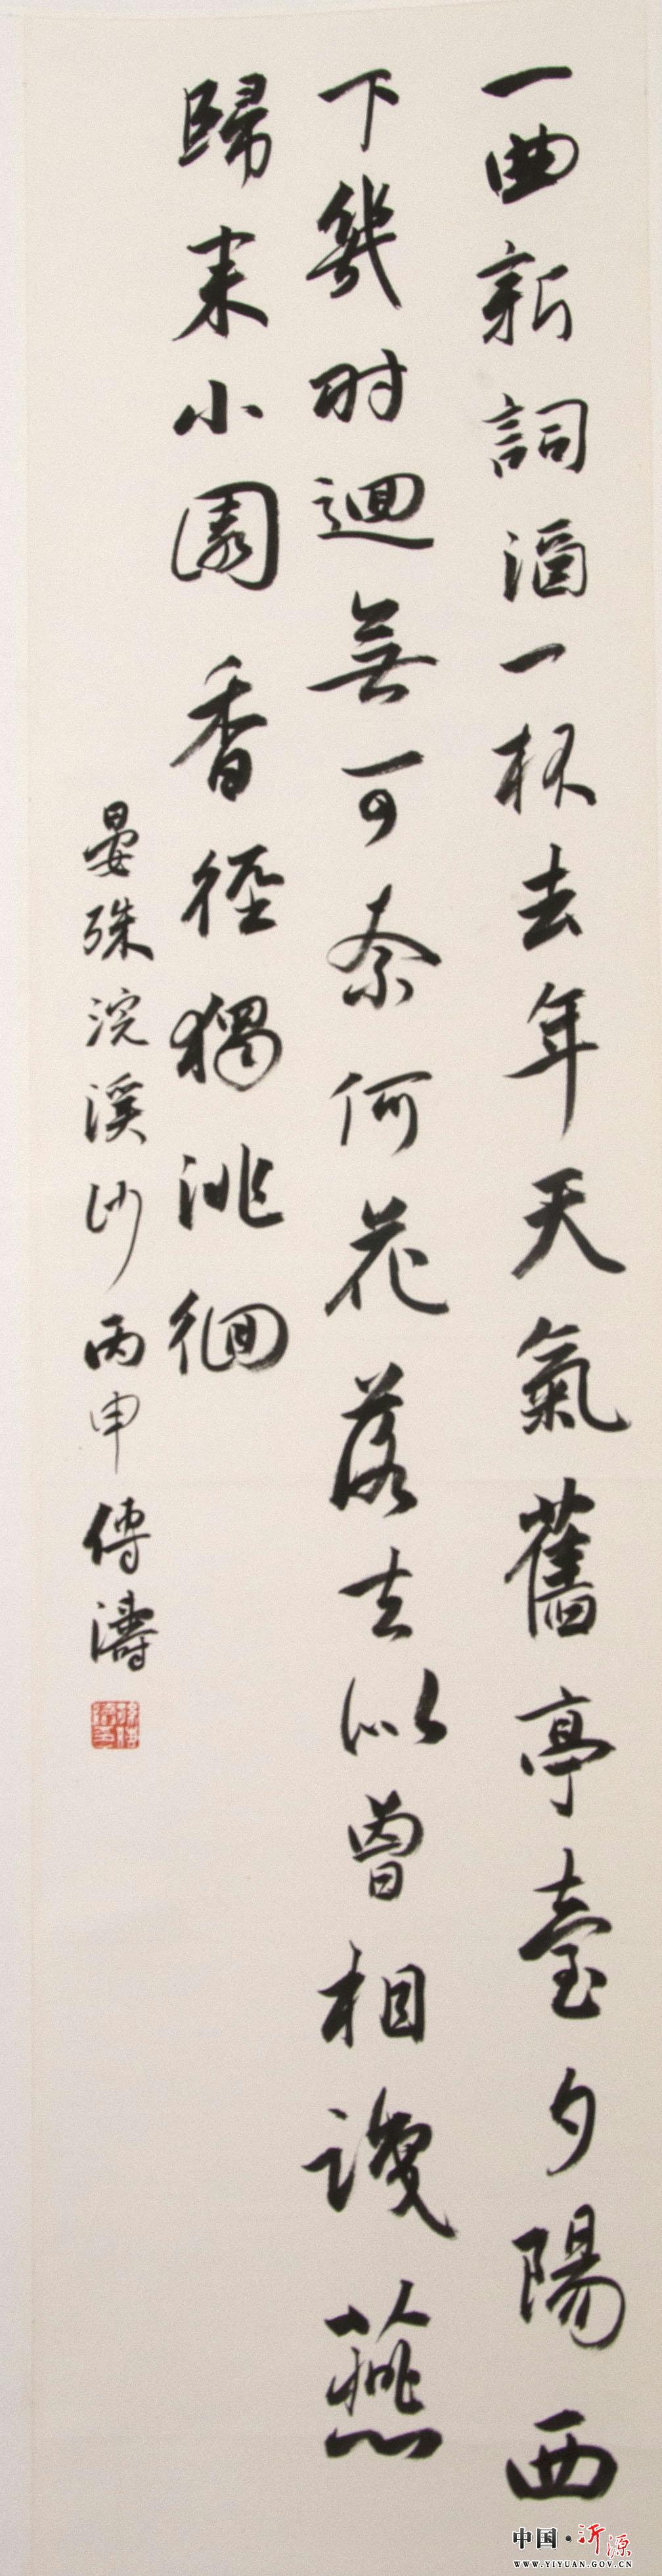 一曲新詞酒一杯去年天氣舊亭臺夕陽西
下幾时迴無可奈何花落去似曾相識燕
歸来小園香徑獨徘徊
晏殊浣溪沙丙申傅濤
中国·沂源
WWW.YIYUAN.GOV.CN